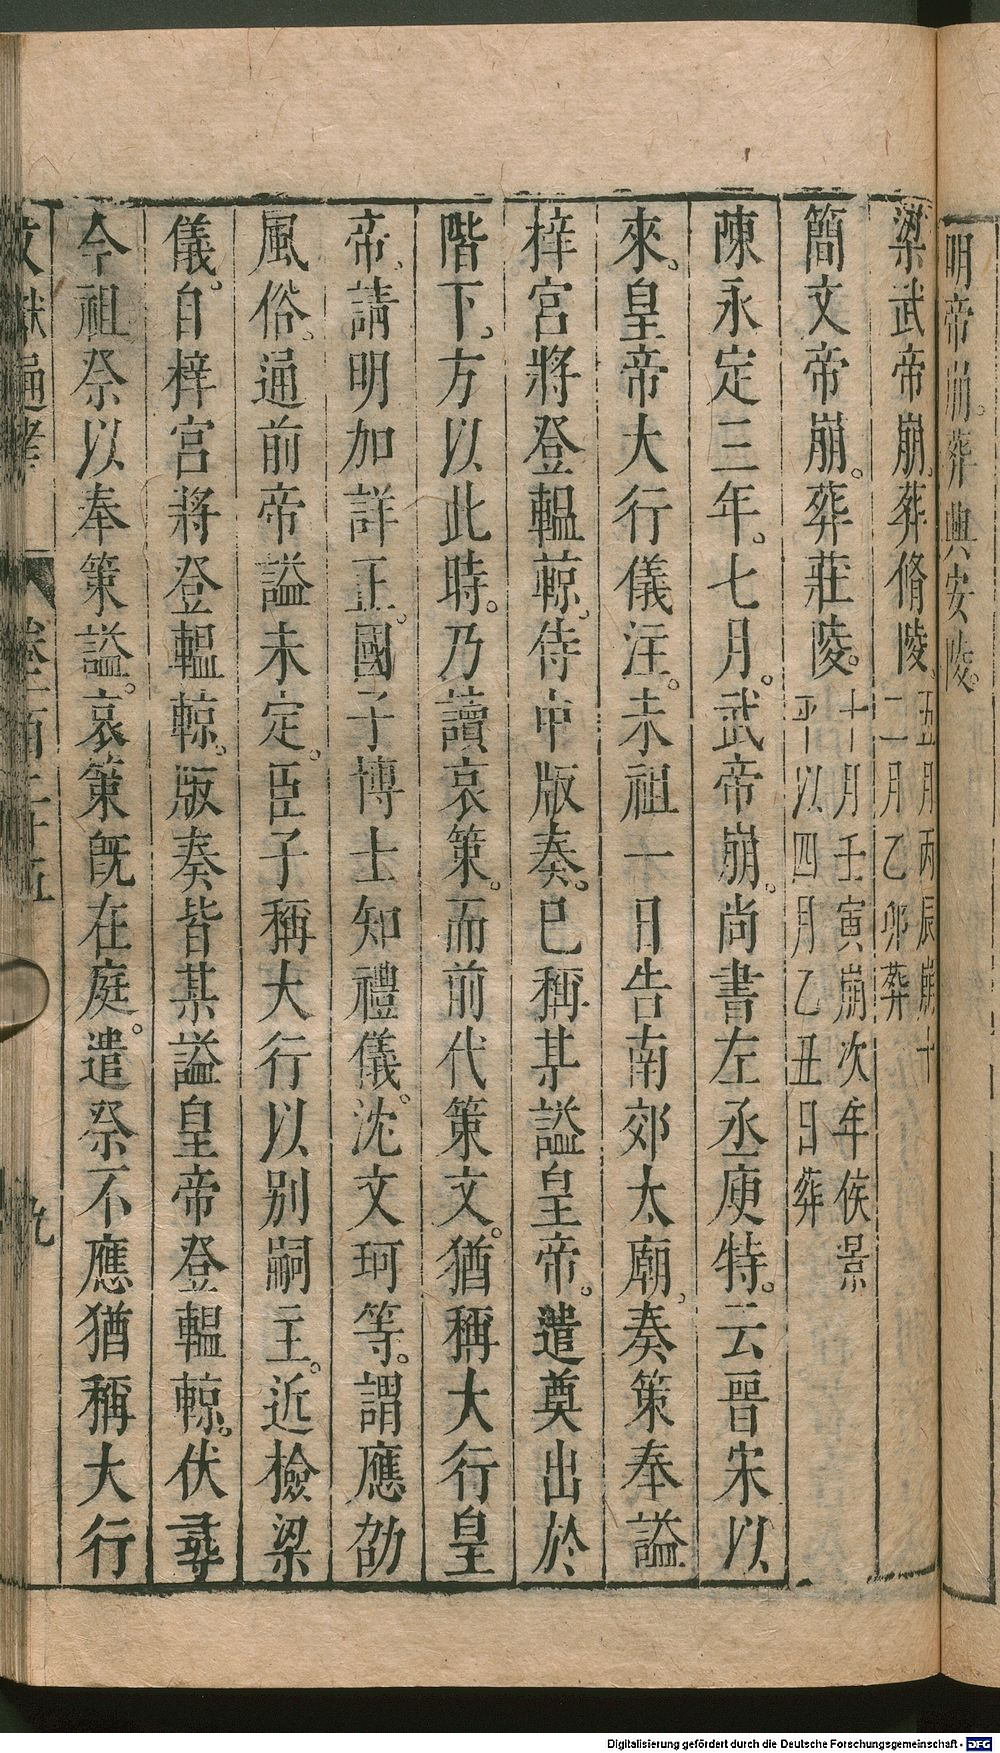 明帝崩。葬興安陵。
梁武帝崩。葬脩陵。五月丙辰崩十
二月乙卯葬
簡文帝崩。葬莊陵。十月壬寅崩次年侯景
平以四月乙丑日葬
陳永定三年。七月。武帝崩。尚書左丞庾特。云晉宋以
來。皇帝大行儀注。未祖一日告南郊太廟。奏策奉謚
梓宮將登轀輬。侍中版奏。已稱某謚皇帝。遣奠出於
階下。方以此時。乃讀哀策。而前代策文。猶稱大行皇
帝。請明加詳正。國子博士知禮儀。沈文珂等。謂應劭
風俗。通前帝謚未定。臣子稱大行以別嗣主。近檢梁
儀。自梓宮將登轀輬。版奏皆某謚皇帝登轀輬。伏尋
今祖祭以奉策謚。哀策既在庭。遣祭不應猶稱大行
文獻通考 卷一百二十五 九
Digitalisierung gefördert durch die Deutsche Forschungsgemeinschaft - DFG